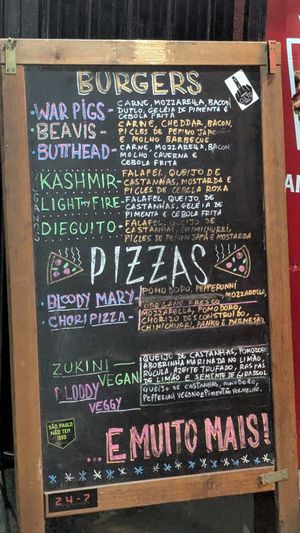 BURGERS
WAR PIGS - CARNE, MOZZARELLA, BACON
DUPLO, GELÉIA DE PIMENTA E
CEBOLA FRITA
BEAVIS - CARNE, CHEDDAR, BACON,
PICLES DE PEPINO JAPA
E MOLHO BARBECUE
BUTTHEAD - CARNE, MOZZARELLA, BACON,
MOLHO CAVERNA E
CEBOLA FRITA
VEGANOS
KASHMIR - FALAFEL, QUEIJO DE
CASTANHAS, MOSTARDA E
PICLES DE CEBOLA ROXA
LIGHT MY FIRE - FALAFEL, QUEIJO DE
CASTANHAS, GELÉIA DE
PIMENTA E CEBOLA FRITA
DIEGUITO - FALAFEL, QUEIJO DE
CASTANHAS, CHIMICHURRI,
PICLES DE PEPINO JAPA E MOSTARDA
PIZZAS
BLOODY MARY - POMODORO, PEPPERONNI
MOZZARELLA,
OREGANO FRESCO
CHORIPIZZA - MOZZARELLA, POMODORO,
CHORIZO DESCONSTRUÍDO,
CHIMICHURRI, PANKO E PARMESÃO
ZUKINI VEGAN
QUEIJO DE CASTANHAS, POMODORO,
ABOBRINHA MARINADA NO LIMÃO,
RÚCULA, AZEITE TRUFADO, RASPAS
DE LIMÃO E SEMENTE DE GIRASSOL
BLOODY VEGGY
QUEIJO DE CASTANHAS, POMODORO,
PEPPERONI VEGANO E PIMENTA VERMELHO.
SÃO PAULO
NÃO TEM
ISSO
...E MUITO MAIS!
24-7